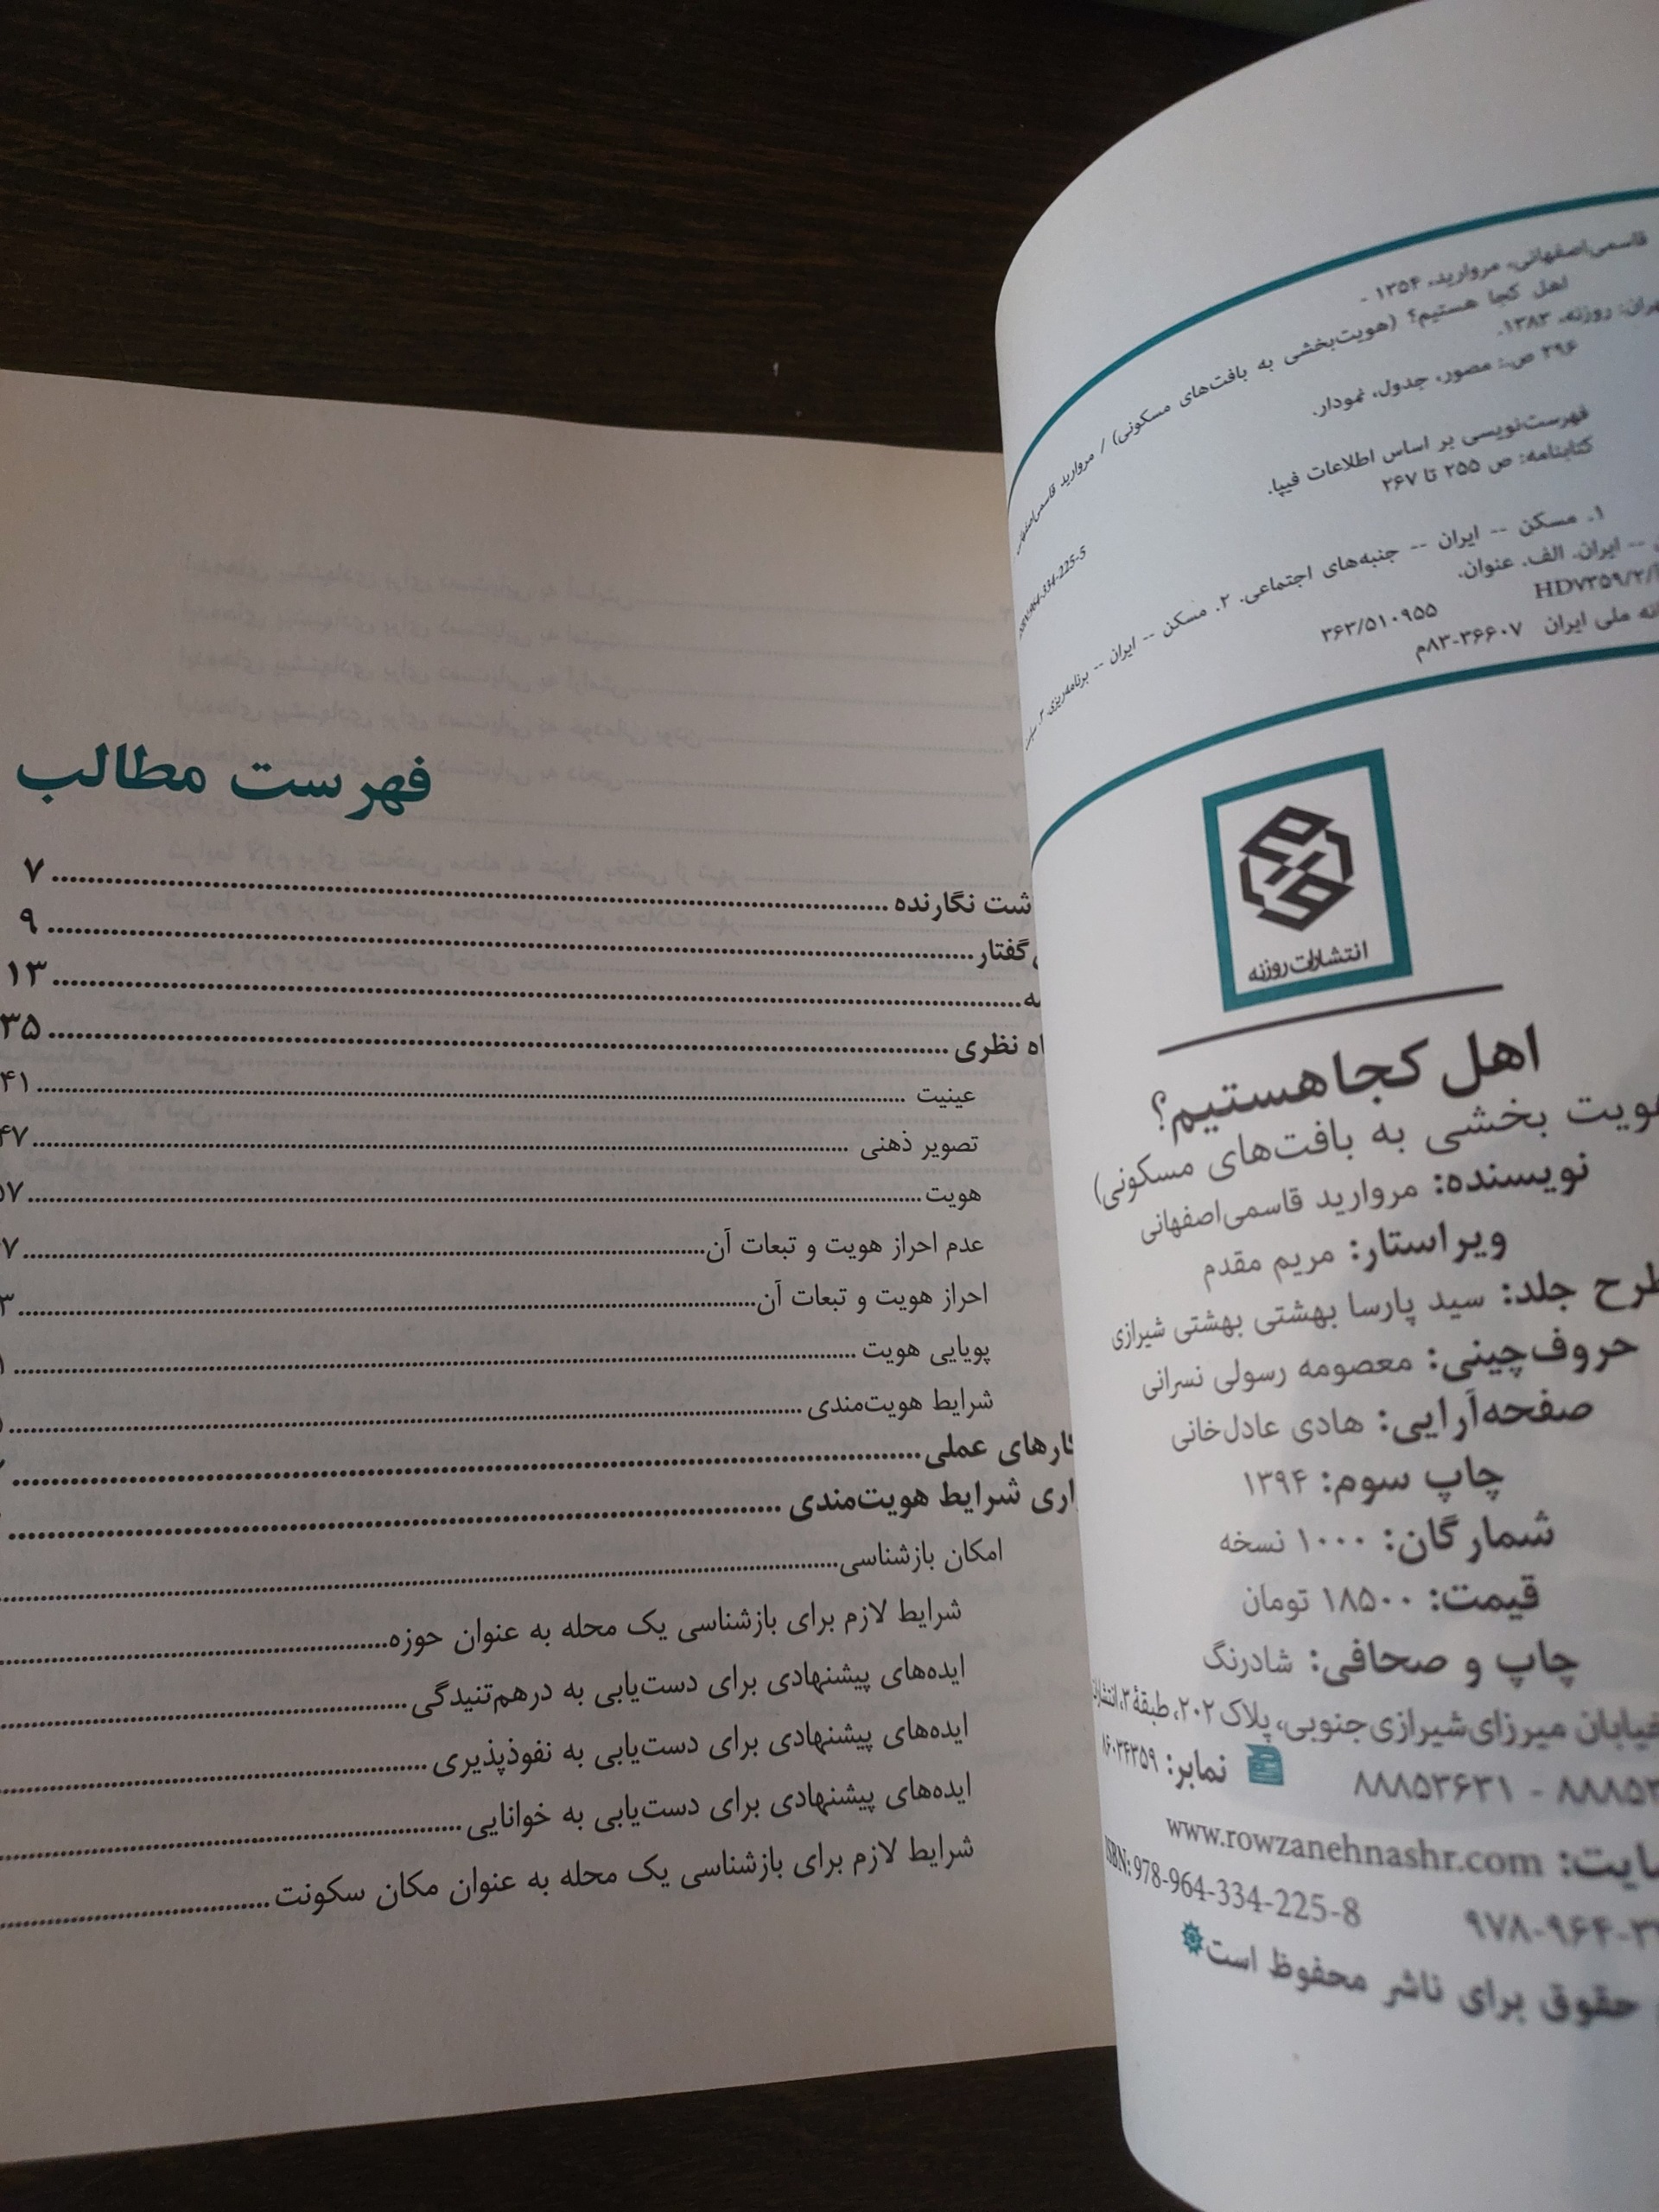 قاسمی‌اصفهانی، مروارید، ۱۳۵۴ -
اهل کجا هستیم؟ (هویت‌بخشی به بافت‌های مسکونی) / مروارید قاسمی‌اصفهانی
روزنه، ۱۳۸۳.
۲۹۶ ص.: مصور، جدول، نمودار.
فهرست‌نویسی بر اساس اطلاعات فیپا.
کتابنامه: ص ۲۵۵ تا ۲۶۷
۱. مسکن -- ایران -- جنبه‌های اجتماعی. ۲. مسکن -- ایران -- برنامه‌ریزی. ۳.
-- ایران. الف. عنوان.
۳۶۳/۵۱۰۹۵۵
ملی ایران ۳۶۶۰۷-۸۳م
انتشارات روزنه
اهل کجا هستیم؟
بخشی به بافت‌های مسکونی)
نویسنده: مروارید قاسمی‌اصفهانی
ویراستار: مریم مقدم
طرح جلد: سید پارسا بهشتی بهشتی شیرازی
حروف‌چینی: معصومه رسولی نسرانی
صفحه‌آرایی: هادی عادل‌خانی
چاپ سوم: ۱۳۹۴
شمارگان: ۱۰۰۰ نسخه
قیمت: ۱۸۵۰۰ تومان
چاپ و صحافی: شادرنگ
خیابان میرزای‌شیرازی‌جنوبی، پلاک ۲۰۲، طبقهٔ ۳،
۸۸۸۵۳۶۳۱ نمابر: ۸۶۰۳۴۳۵۹
www.rowzanehnashr.com
ISBN: 978-964-334-225-8
حقوق برای ناشر محفوظ است
فهرست مطالب
نگارنده ۷
گفتار ۹
۱۳
نظری ۳۵
عینیت ۴۱
تصویر ذهنی ۴۷
هویت
عدم احراز هویت و تبعات آن
احراز هویت و تبعات آن
پویایی هویت
شرایط هویت‌مندی
عملی
شرایط هویت‌مندی
امکان بازشناسی
شرایط لازم برای بازشناسی یک محله به عنوان حوزه
ایده‌های پیشنهادی برای دست‌یابی به درهم‌تنیدگی
ایده‌های پیشنهادی برای دست‌یابی به نفوذپذیری
ایده‌های پیشنهادی برای دست‌یابی به خوانایی
شرایط لازم برای بازشناسی یک محله به عنوان مکان سکونت